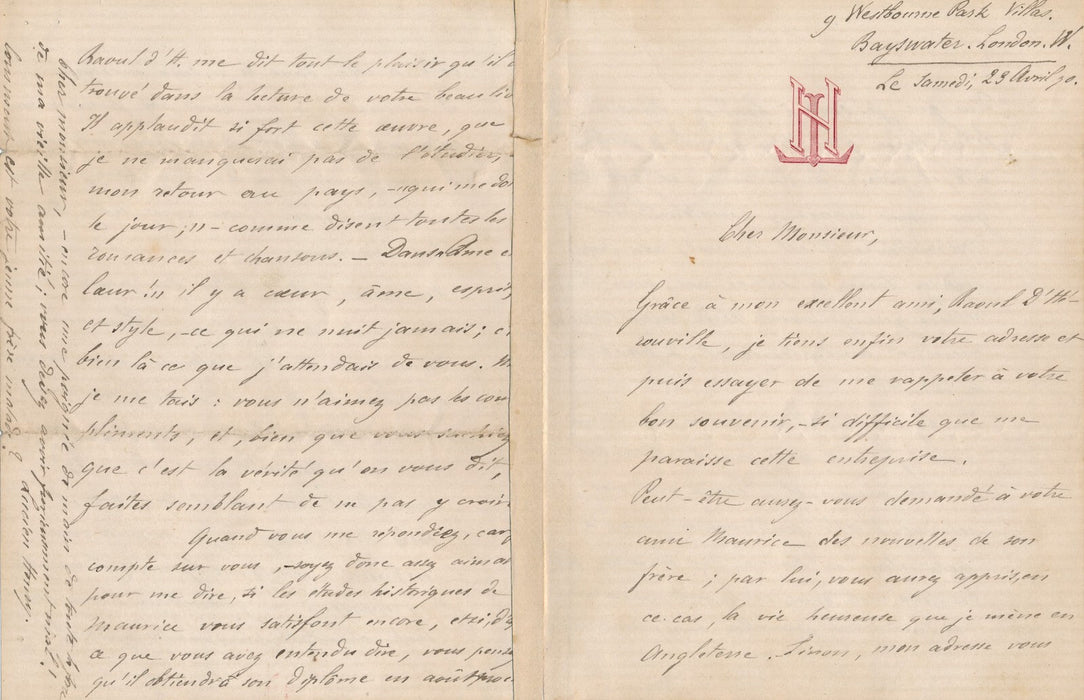 9 Westbourne Park Villas.
Bayswater. London. W.
Le Samedi, 23 Avril 70.
HL
Cher Monsieur,
Grâce à mon excellent ami, Raoul D'Hé-
rouville, je tiens enfin votre adresse et
puis essayer de me rappeler à votre
bon souvenir, - si difficile que me
paraisse cette entreprise.
Peut-être aurez-vous demandé à votre
ami Maurice des nouvelles de son
frère ; par lui, vous aurez appris, en
ce cas, la vie heureuse que je mène en
Angleterre. Sinon, mon adresse vous
Raoul d'H. me dit tout le plaisir qu'il
trouvé dans la lecture de votre beau
Il applaudit si fort cette œuvre, que
je ne manquerai pas de l'étudier,
mon retour au pays, - "qui me
le jour ;" - comme disent toutes les
romances et chansons. - Dans "Ame
Cœur !" il y a cœur, âme, esprit,
et style, - ce qui ne nuit jamais ;
bien là ce que j'attendais de vous.
je me tais : vous n'aimez pas les com
pliments, et, bien que vous sachiez
que c'est la vérité qu'on vous dit,
faites semblant de ne pas y croire
Quand vous me répondrez, car
compte sur vous, - soyez donc assez
pour me dire, si les études historiques de
Maurice vous satisfont encore, et si,
ce que vous avez entendu dire, vous
qu'il obtiendra son diplôme en août
Cher monsieur, - encore une poignée de main de toute la
de ma vieille amitié ; vous devez avoir
Comment est votre jeune frère malade ?
Lucien Henry.